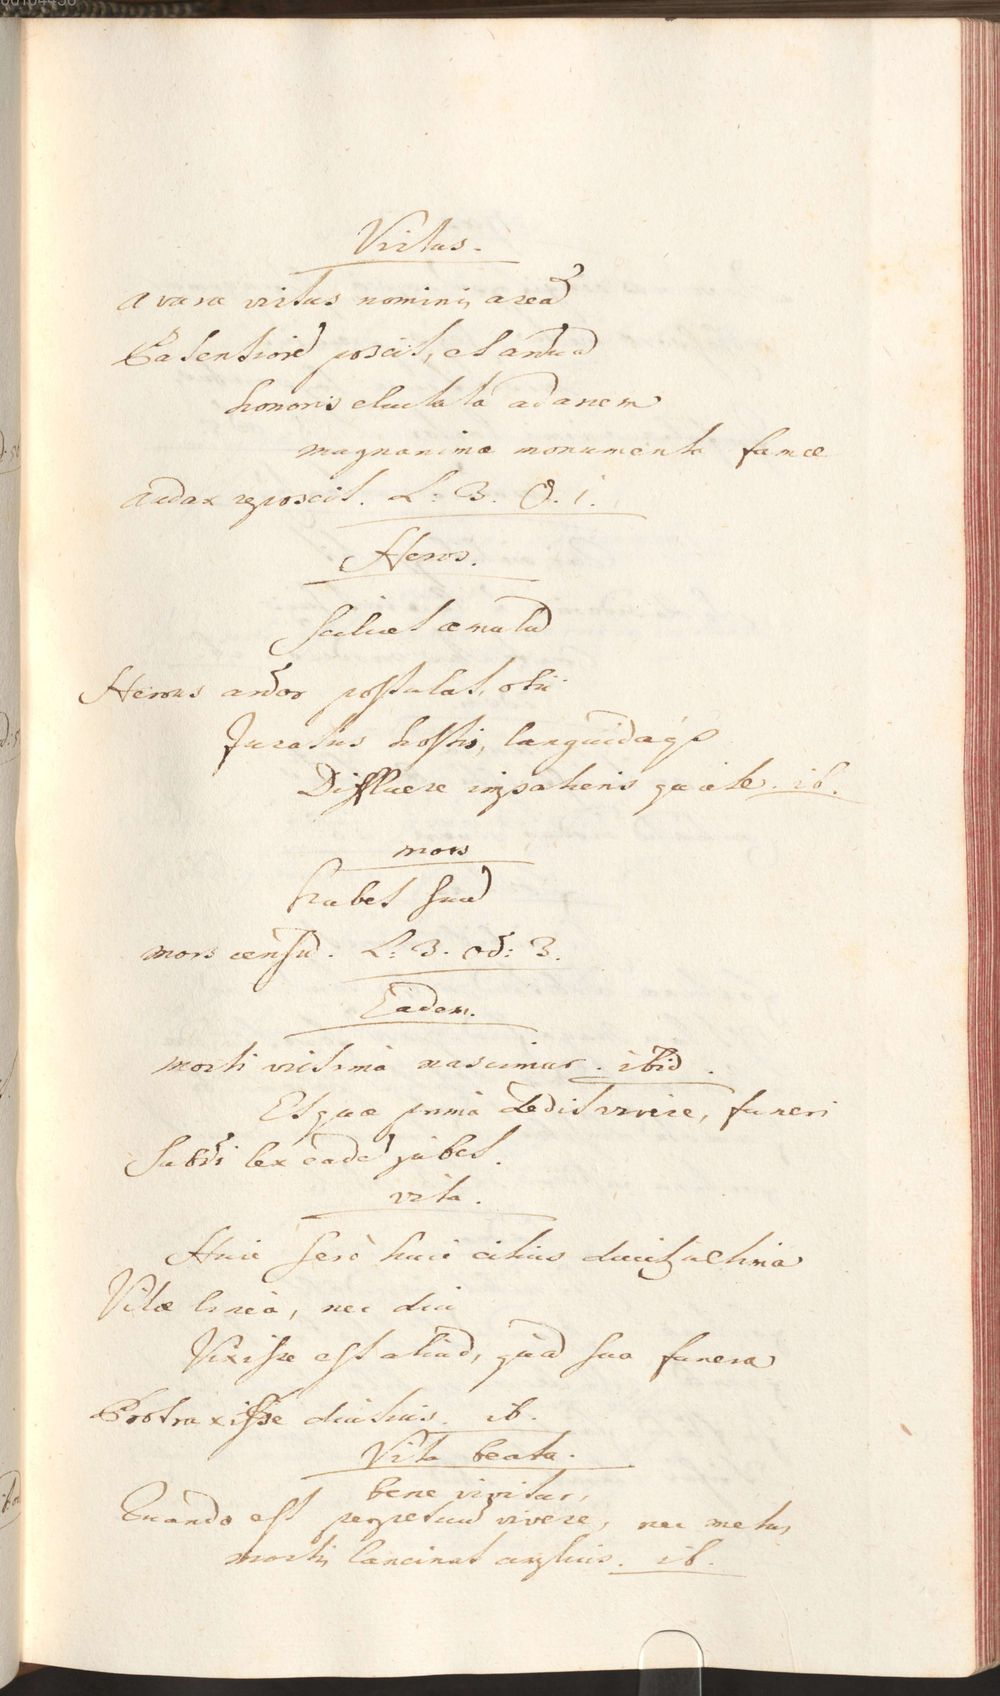 Virtus.
avara virtus nominis areā
Patentiorē poscit, et arduā
honoris eluctata ad arcem
magnanimæ monumenta famæ
audax reposcit. L: 3. O. 1.
Heros.
Scilicet æmulū
Herous ardor postulat, otii
Juratus hostis, languidaqȝ
Diffluere impatiens quiete. ib.
mors
habet suū
mors censū. L: 3. od: 3.
Eadem.
morti victima nascimur. ibid.
Et quæ prima dedit vivere, funeri
Subdi lex eadē jubet.
vita.
Huic serò huic citius ducitur ultima
Vitæ linea, nec diu
Vixisse est aliud, quā sua funera
Protraxisse diutius. ib.
Vita beata.
bene vivitur,
Quando est perpetuū vivere, nec metus
mortis lancinat anxius. ib.